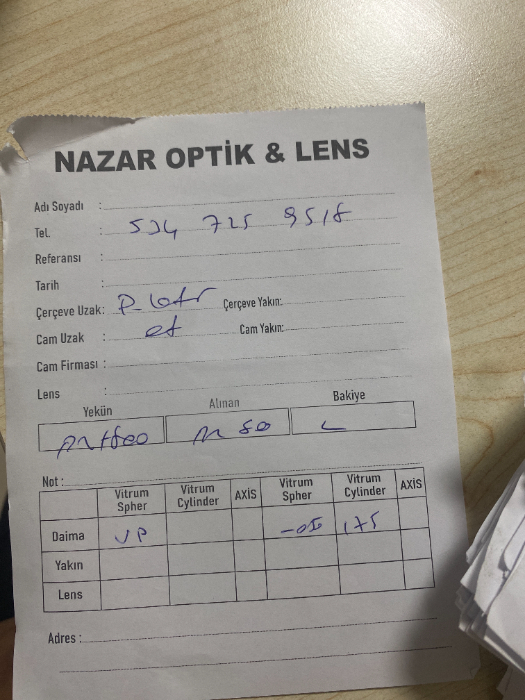 NAZAR OPTİK & LENS
Adı Soyadı :
Tel. : 534 725 9518
Referansı :
Tarih :
Çerçeve Uzak: Çerçeve Yakın:
Cam Uzak : Cam Yakın:
Cam Firması :
Lens :
Yekün Alınan Bakiye
Not :
Vitrum Spher Vitrum Cylinder AXİS Vitrum Spher Vitrum Cylinder AXİS
Daima
Yakın
Lens
Adres :